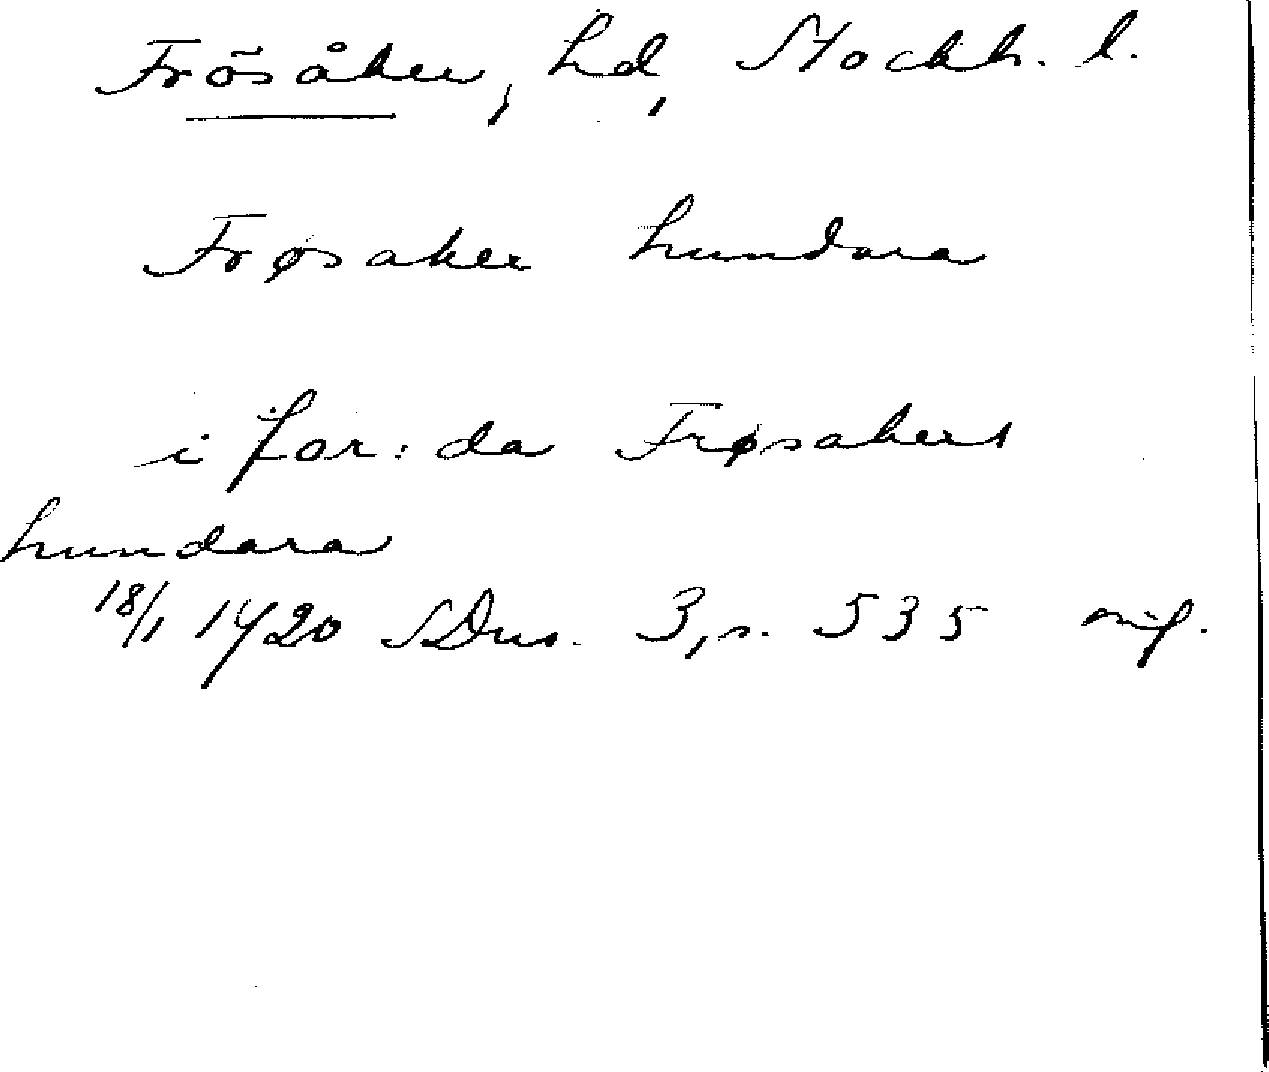 Frösåker, hd, Stockh. l.
Frøsaker hundara
i for: da Frøsakers
hundara
18/1 1420 SDns. 3, s. 535 orig.